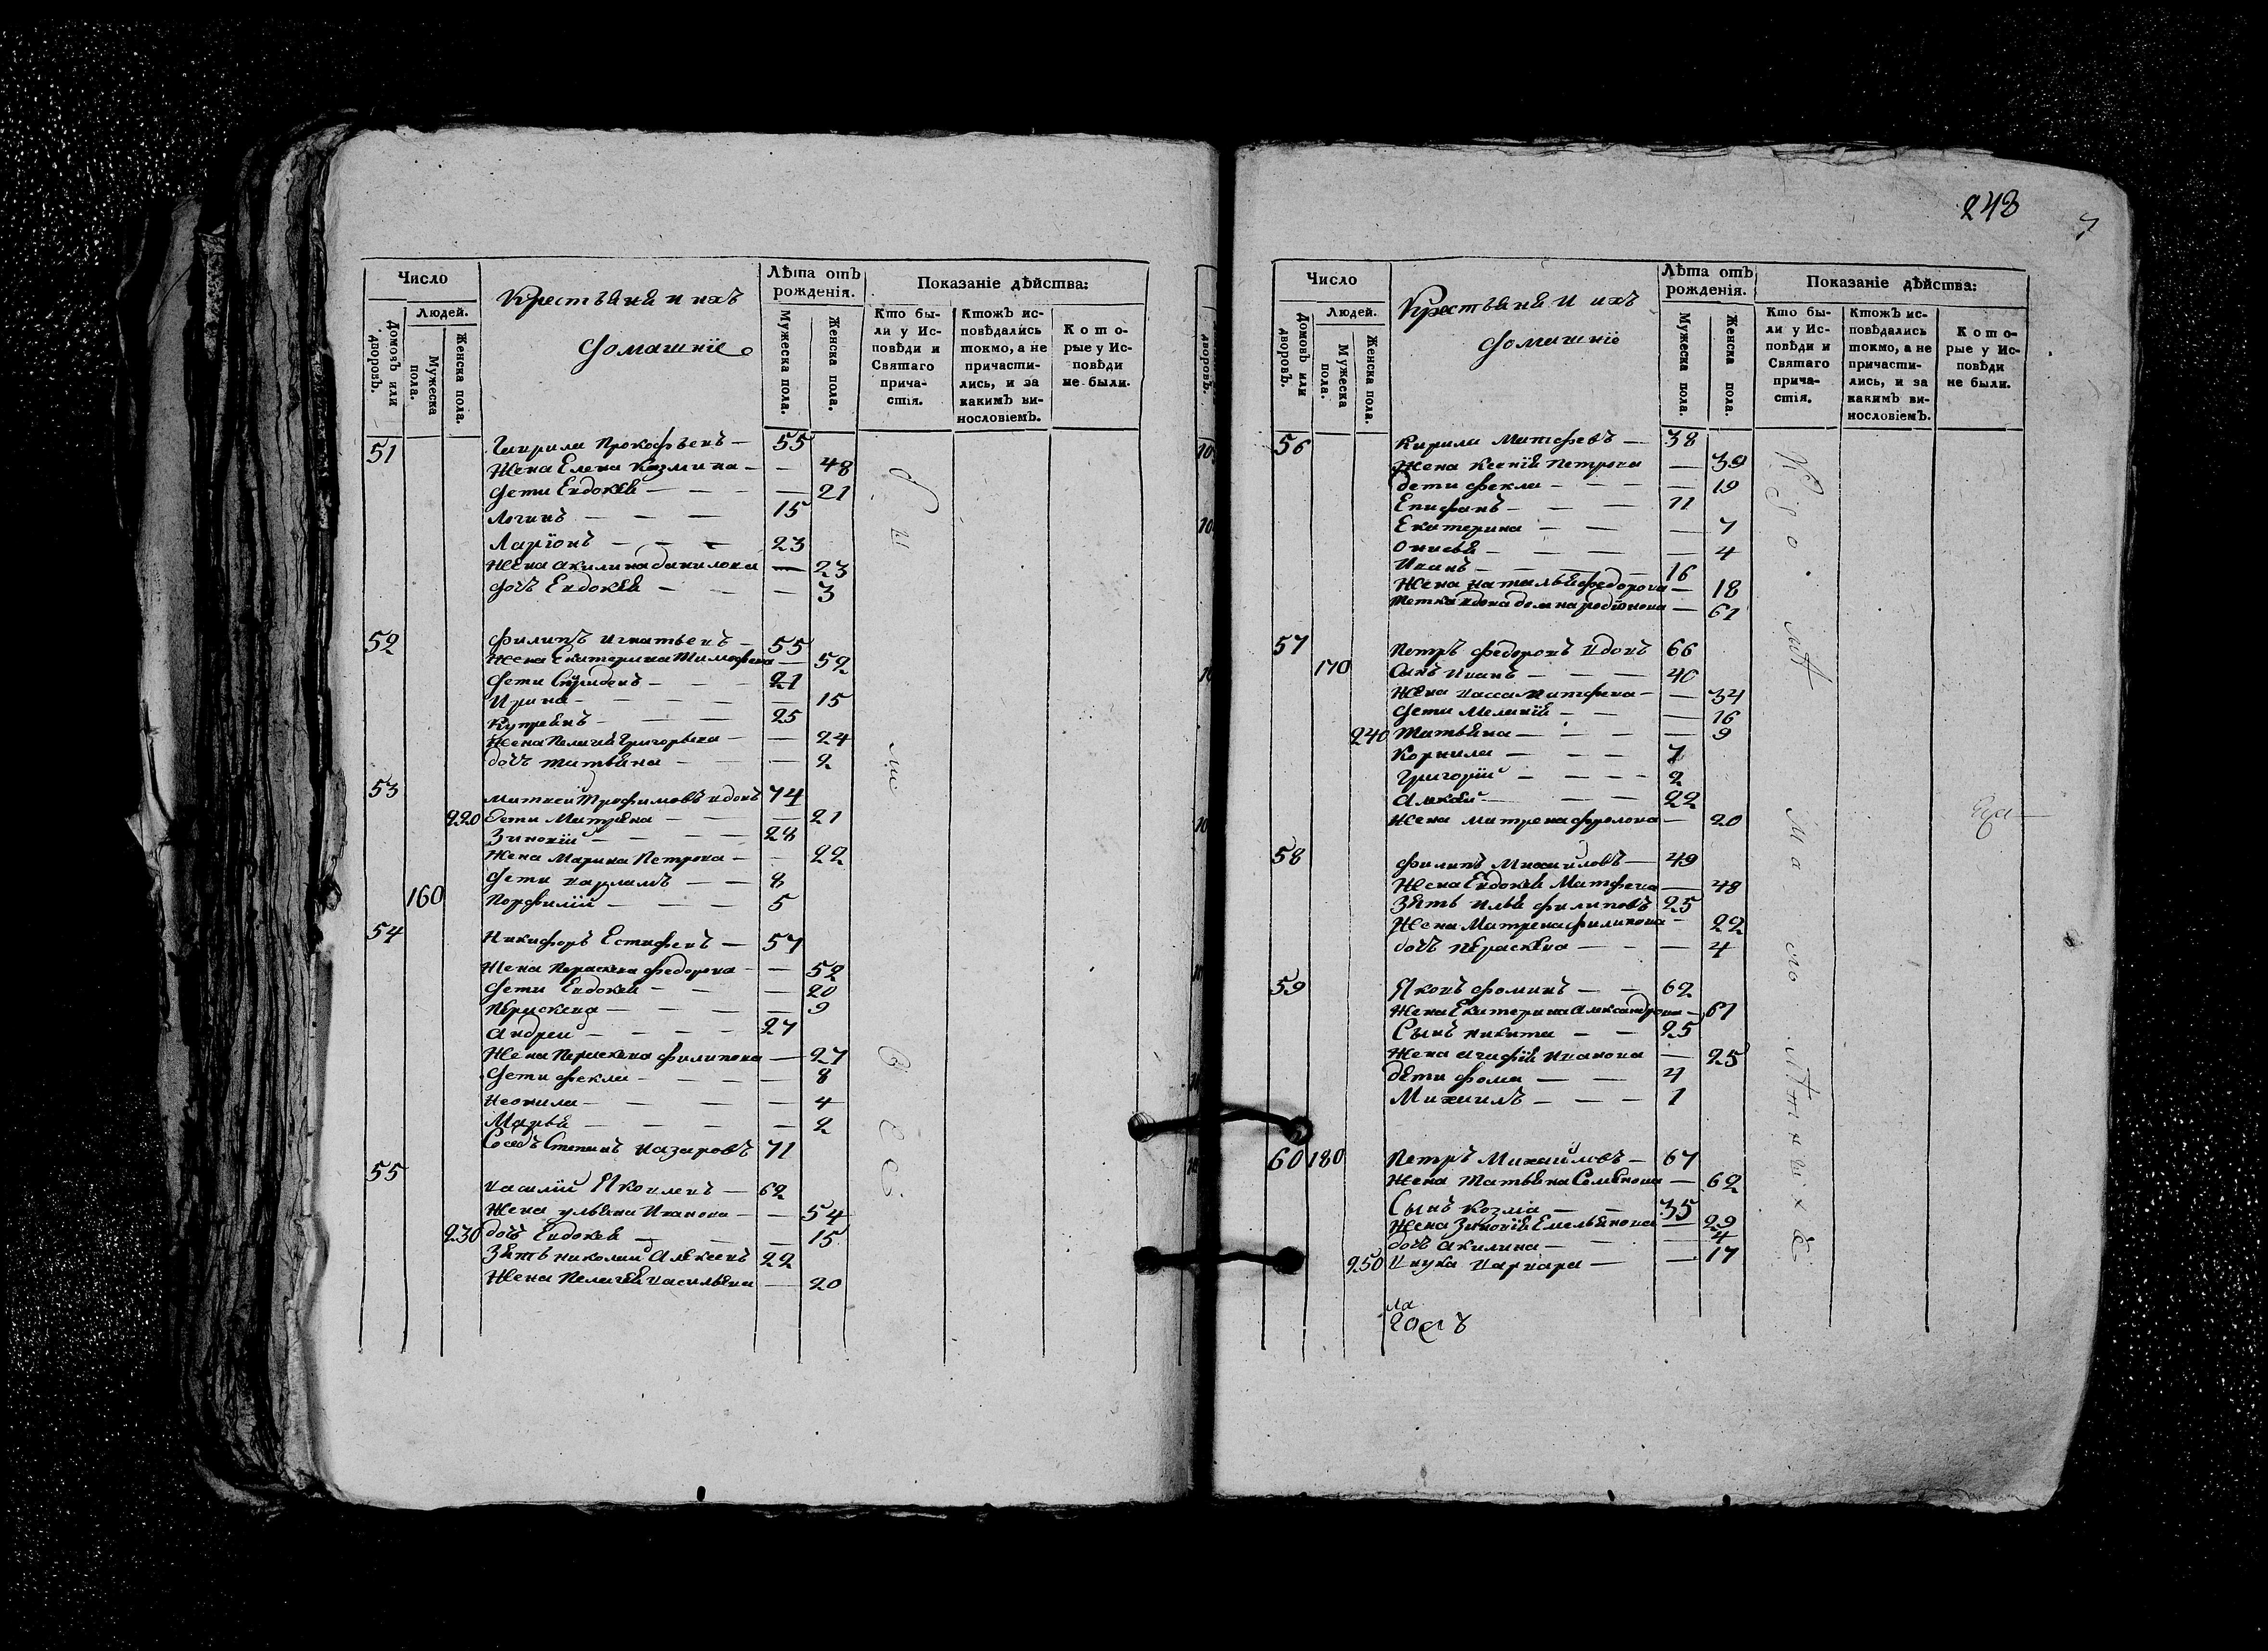 248
7
Число
Людей.
Домовъ или дворовъ.
Мужеска пола.
Женска пола.
Крестьяня и ихъ
домашніе
Лѣта отъ рожденія.
Мужеска пола.
Женска пола.
Показаніе дѣйства:
Кто были у Исповѣди и Святаго причастія.
Ктожъ исповѣдались токмо, а не причастились, и за какимъ винословіемъ.
Которые у Исповѣди не были.
51 Гаврила Прокофьевъ — 55
Жена Елена Козмина — — 48
дети Евдокея — — — 21
Логинъ — — — 15
Ларіонъ — — — 23
Жена Акилина данилова — 23
дочь Евдокея — — — 3
52 Филипъ Игнатьевъ — 55
Жена Екатерина Тимофеева — 52
дети — 21
Ирина — — — — 15
25
Жена Пелагея Григорьева — — 24
дочь татьяна — — — 2
53 Матвей Трофимовъ вдовъ 74
220 дети Матрена — — — 21
Зиновій — — — 28
Жена Марина Петрова — — 22
дети варламъ — — 8
160 Порфилій — — — 5
54 Никифоръ Естифеевъ — 57
Жена Пераскева федорова — — 52
дети Евдокея — — — 20
Пераскева — — — — 9
Андреи — — — 27
Жена Пераскева филипова — 27
дети фекла — — — — 8
Неонила — — — — 4
Марья — — — — 2
Соседъ Степанъ Назаровъ 71
55 Василий Яковлевъ — 62
Жена ульяна Иванова — — 54
230 дочь Евдокея — — 15
Зять николай Алексеевъ 22
Жена Пелагея васильева — 20
Число
Людей.
Домовъ или дворовъ.
Мужеска пола.
Женска пола.
Крестьяня и ихъ
домашніе
Лѣта отъ рожденія.
Мужеска пола.
Женска пола.
Показаніе дѣйства:
Кто были у Исповѣди и Святаго причастія.
Ктожъ исповѣдались токмо, а не причастились, и за какимъ винословіемъ.
Которые у Исповѣди не были.
56 Кирила Матфевъ — 38
Жена Ксенія Петрова — 39
дети фекла — — — — 19
Епифанъ — — — 11
Екатерина — — — 7
Онисья — — — — 4
Иванъ — — — 16
Жена наталья федорова — 18
тетка вдова домна родіонова — 61
57 Петръ федоровъ вдовъ 66
170 Сынъ Иванъ — — — 40
Жена васса — 34
дети Меланія — — — 16
240 Татьяна — — — — 9
Корнила — — — 7
Григорій — — — 2
Алексей — — — 22
Жена матрена фролова — 20
58 Филипъ Михаиловъ — 49
Жена Евдокея Матфеева — 48
Зять Илья филиповъ 25
Жена Матрена филипова — 22
дочь Пераскева — — — 4
59 Яковъ фоминъ — — 62
Жена Екатерина Александрова — 61
Сынъ никита — — 25
Жена агафія Иванова — 25
дети фома — — 4
Михаилъ — — — 1
60 180 Петръ Михаиловъ — 67
Жена Татьяна Семенова — 62
Сынъ Козма — — 35
Жена Зиновія Емельянова — 29
дочь акилина — — — 4
250 Внука Варвара — — 17